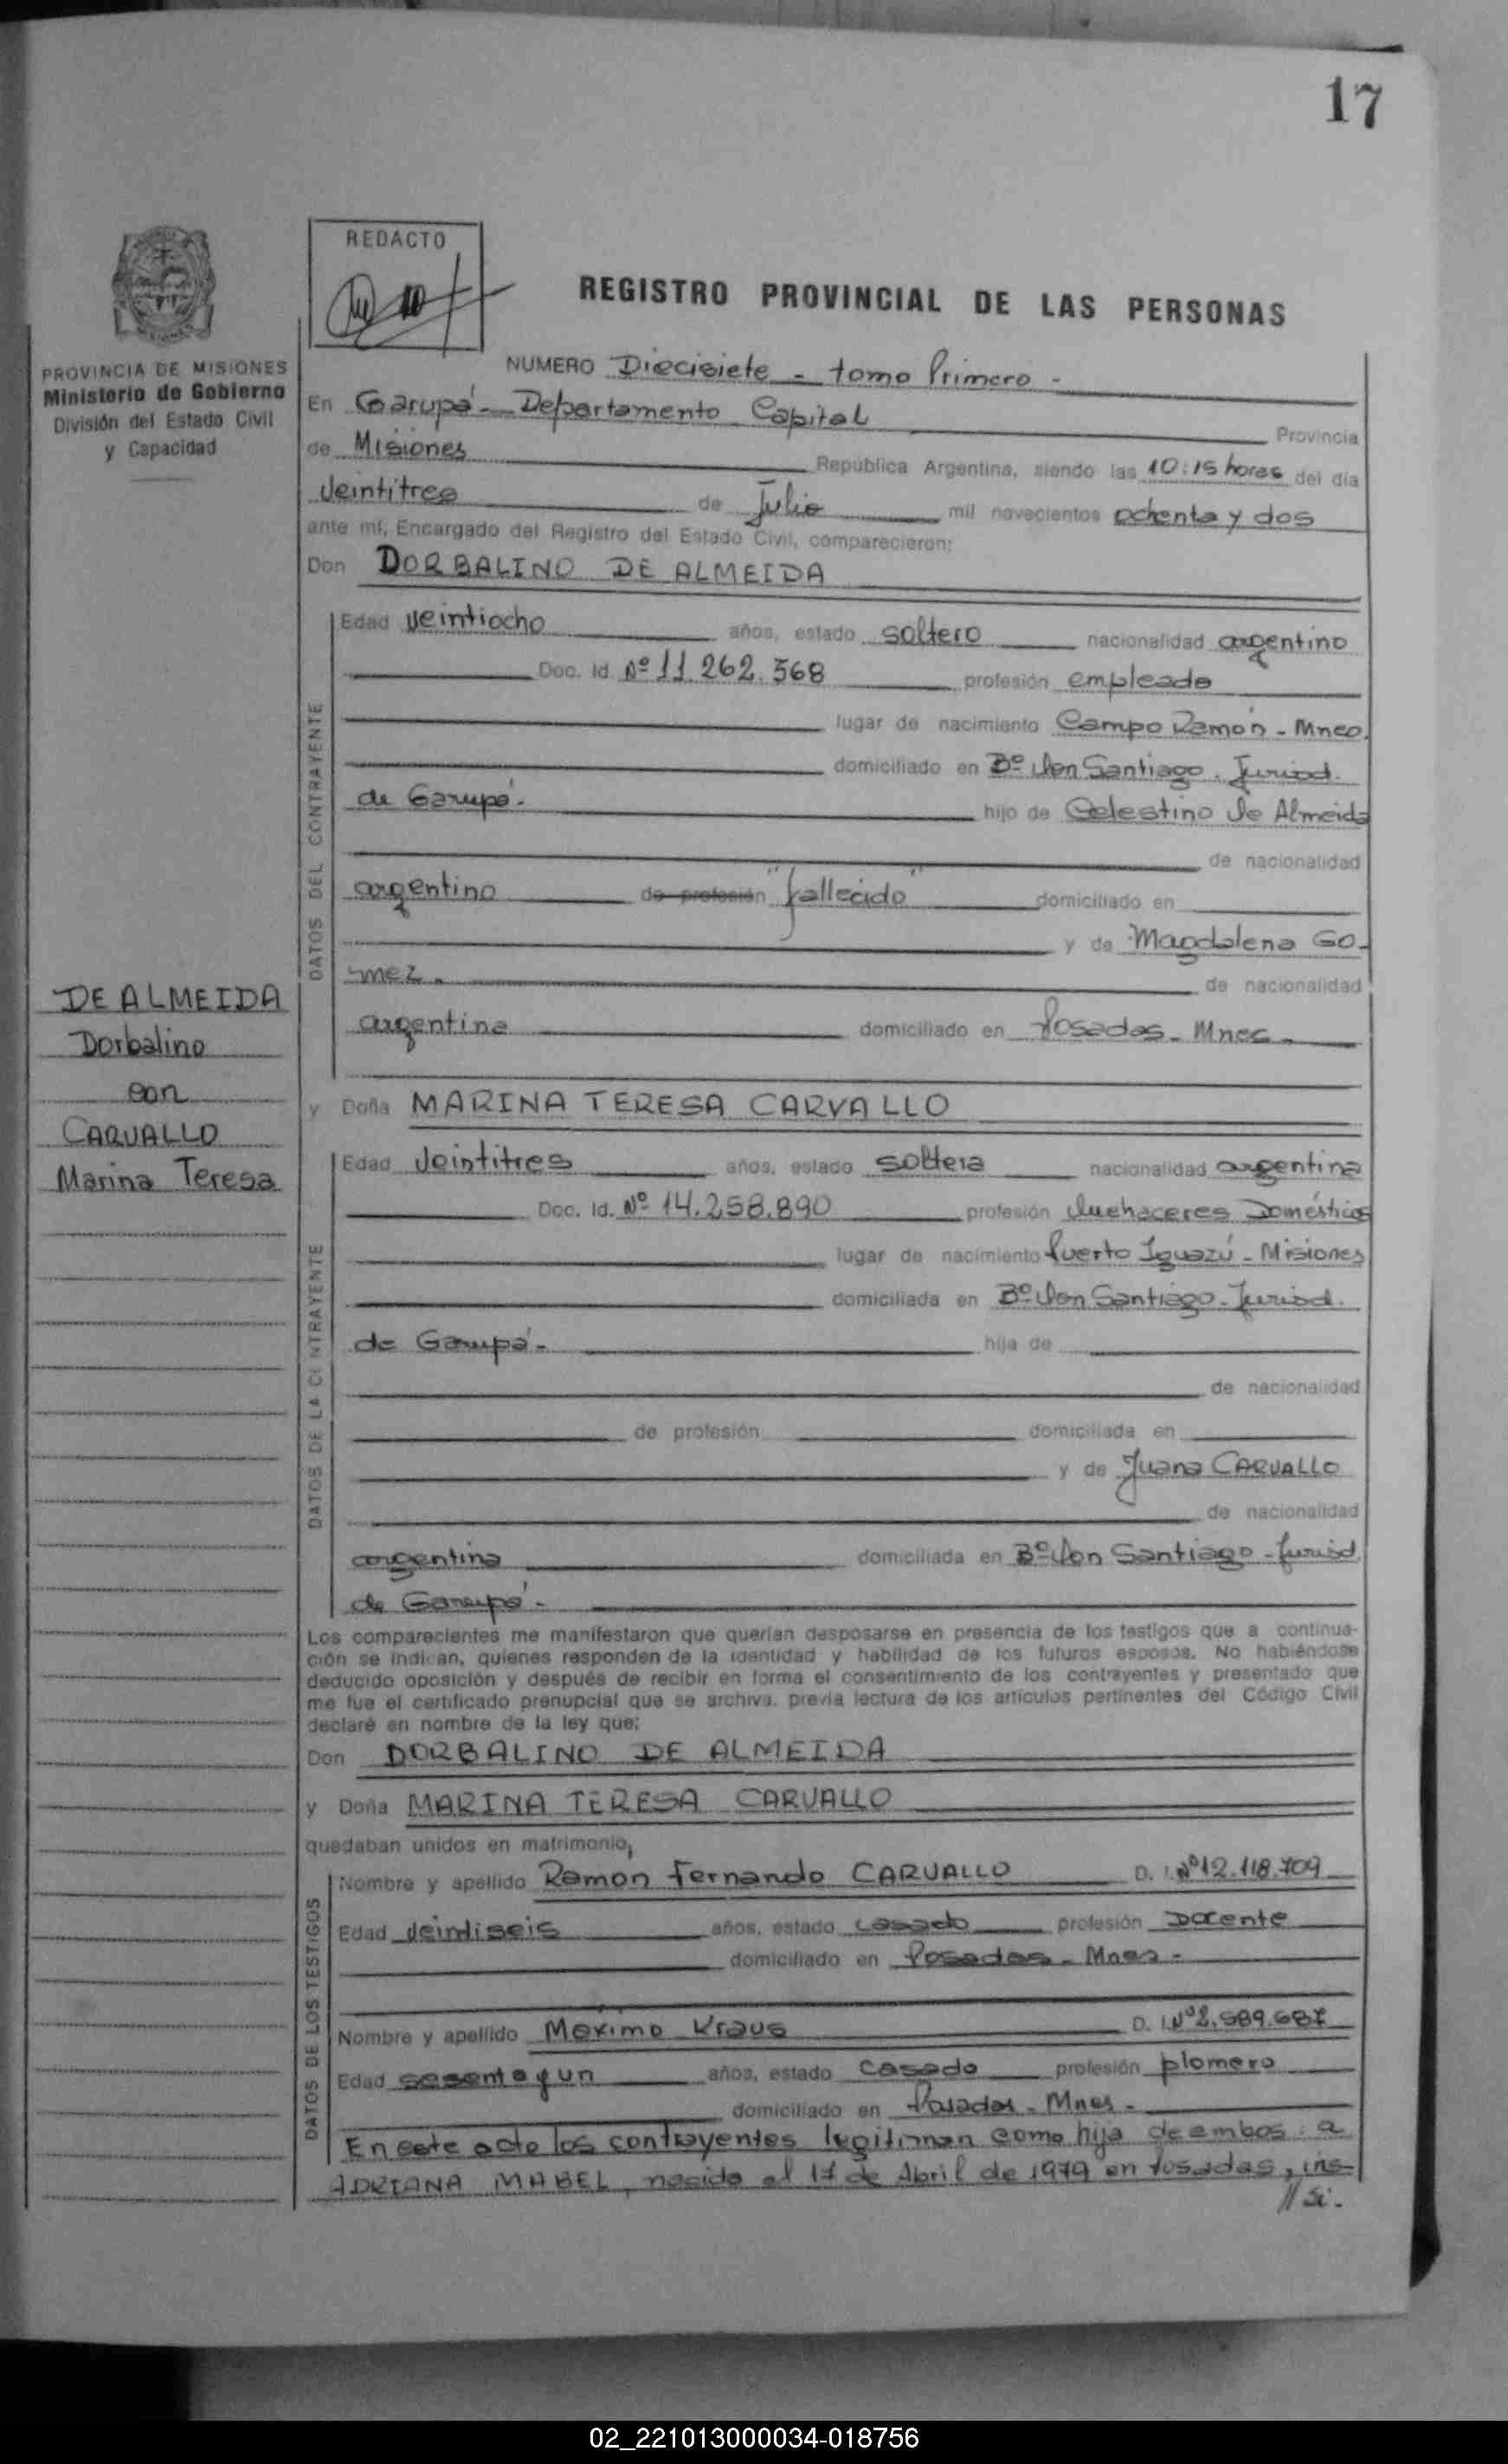 17
REDACTO
REGISTRO PROVINCIAL DE LAS PERSONAS
PROVINCIA DE MISIONES
Ministerio de Gobierno
División del Estado Civil
y Capacidad
NUMERO Diecisiete - tomo Primero -
En Garupá - Departamento Capital Provincia
de Misiones República Argentina, siendo las 10:15 horas del día
Veintitres de Julio mil novecientos ochenta y dos
ante mí, Encargado del Registro del Estado Civil, comparecieron:
Don DORBALINO DE ALMEIDA
DATOS DEL CONTRAYENTE
Edad veintiocho años, estado soltero nacionalidad argentino
Doc. Id. Nº 11.262.568 profesión empleado
lugar de nacimiento Campo Ramón - Mnes.
domiciliado en Bº Don Santiago. Jurisd.
de Garupá- hijo de Celestino De Almeida
de nacionalidad
argentino de profesión "fallecido" domiciliado en
y de Magdalena Gó-
mez. de nacionalidad
argentina domiciliado en Posadas - Mnes -
DE ALMEIDA
Dorbalino
con
CARVALLO
Marina Teresa
y Doña MARINA TERESA CARVALLO
DATOS DE LA CONTRAYENTE
Edad Veintitres años, estado soltera nacionalidad argentina
Doc. Id. Nº 14.258.890 profesión Quehaceres Domésticos
lugar de nacimiento Puerto Iguazú - Misiones
domiciliada en Bº Don Santiago - Jurisd.
de Garupá- hija de
de nacionalidad
de profesión domiciliada en
y de Juana CARVALLO
de nacionalidad
argentina domiciliada en Bº Don Santiago - Jurisd
de Garupá -
Los comparecientes me manifestaron que querían desposarse en presencia de los testigos que a continua-
ción se indican, quienes responden de la identidad y habilidad de los futuros esposos. No habiéndose
deducido oposición y después de recibir en forma el consentimiento de los contrayentes y presentado que
me fue el certificado prenupcial que se archiva, previa lectura de los artículos pertinentes del Código Civil
declaré en nombre de la ley que:
Don DORBALINO DE ALMEIDA
y Doña MARINA TERESA CARVALLO
quedaban unidos en matrimonio,
DATOS DE LOS TESTIGOS
Nombre y apellido Ramon Fernando CARVALLO D. I. Nº 12.118.709
Edad Veintiseis años, estado casado profesión Docente
domiciliado en Posadas - Mnes -
Nombre y apellido Maximo Kraus D. I. Nº 2.589.687
Edad sesenta y un años, estado casado profesión plomero
domiciliado en Posadas - Mnes -
En este acto los contrayentes legitiman como hija de ambos a
ADRIANA MABEL, nacida el 17 de Abril de 1979 en Posadas, ins-
02_221013000034-018756